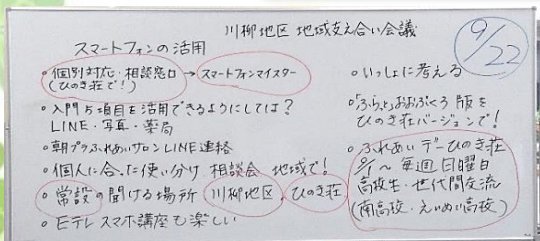 川柳地区 地域支え合い会議
9/22
スマートフォンの活用
・個別対応・相談窓口
(ひのき荘で!)
→スマートフォンマイスター
・入門5項目を活用できるようにしては?
LINE・写真・薬局
・朝プラふれあいサロンLINE連絡
・個人に合った使い分け 相談会 地域で!
・常設の聞ける場所 川柳地区、ひのき荘
・Eテレ スマホ講座も楽しい
・いっしょに考える
・「ふらっとおおぶくろ版を
ひのき荘バージョンで!
・ふれあいデーひのき荘
~毎週日曜日
高校生・世代間交流
(南高校・えいめい高校)